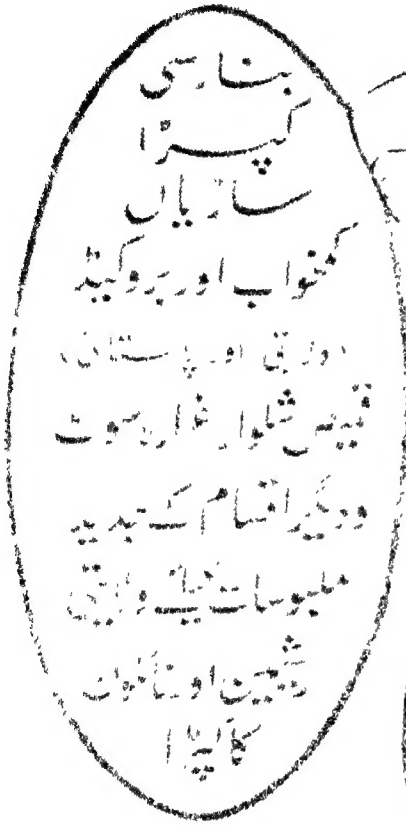 بنارسی
کپڑا
ساڑیاں
کمخواب اور بروکیڈ
اور
قمیص شلوار غرارہ سوٹ
و دیگر اقسام کے جدید
ملبوسات نیز ولائتی
ریشمین اور نائلون
کا کپڑا